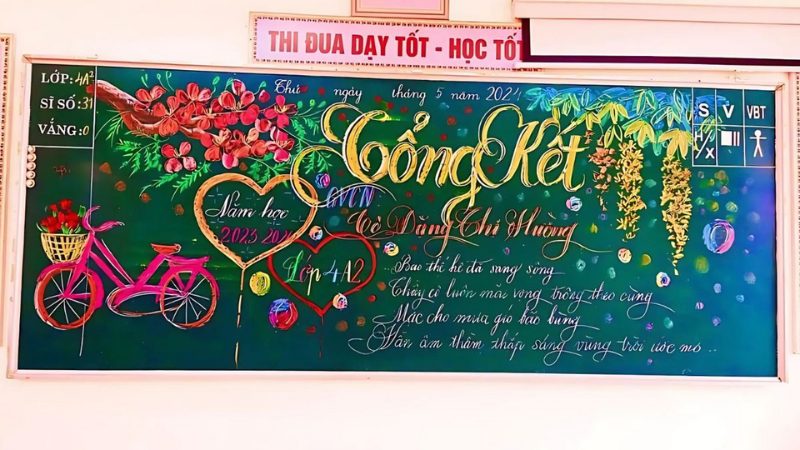 THI ĐUA DẠY TỐT - HỌC TỐT
LỚP: 4A2
SĨ SỐ: 31
VẮNG: 0
Thứ ngày tháng 5 năm 2024
Tổng Kết
Năm học
2023 2024
GVCN
Cô Đặng Thị Hường
Lớp 4A2
Bao thế hệ đã sang sông
Thầy cô luôn mắc vọng trông theo cùng
Mặc cho mưa gió bão bùng
Vẫn âm thầm thắp sáng vùng trời ước mơ ..
S V VBT
H/X